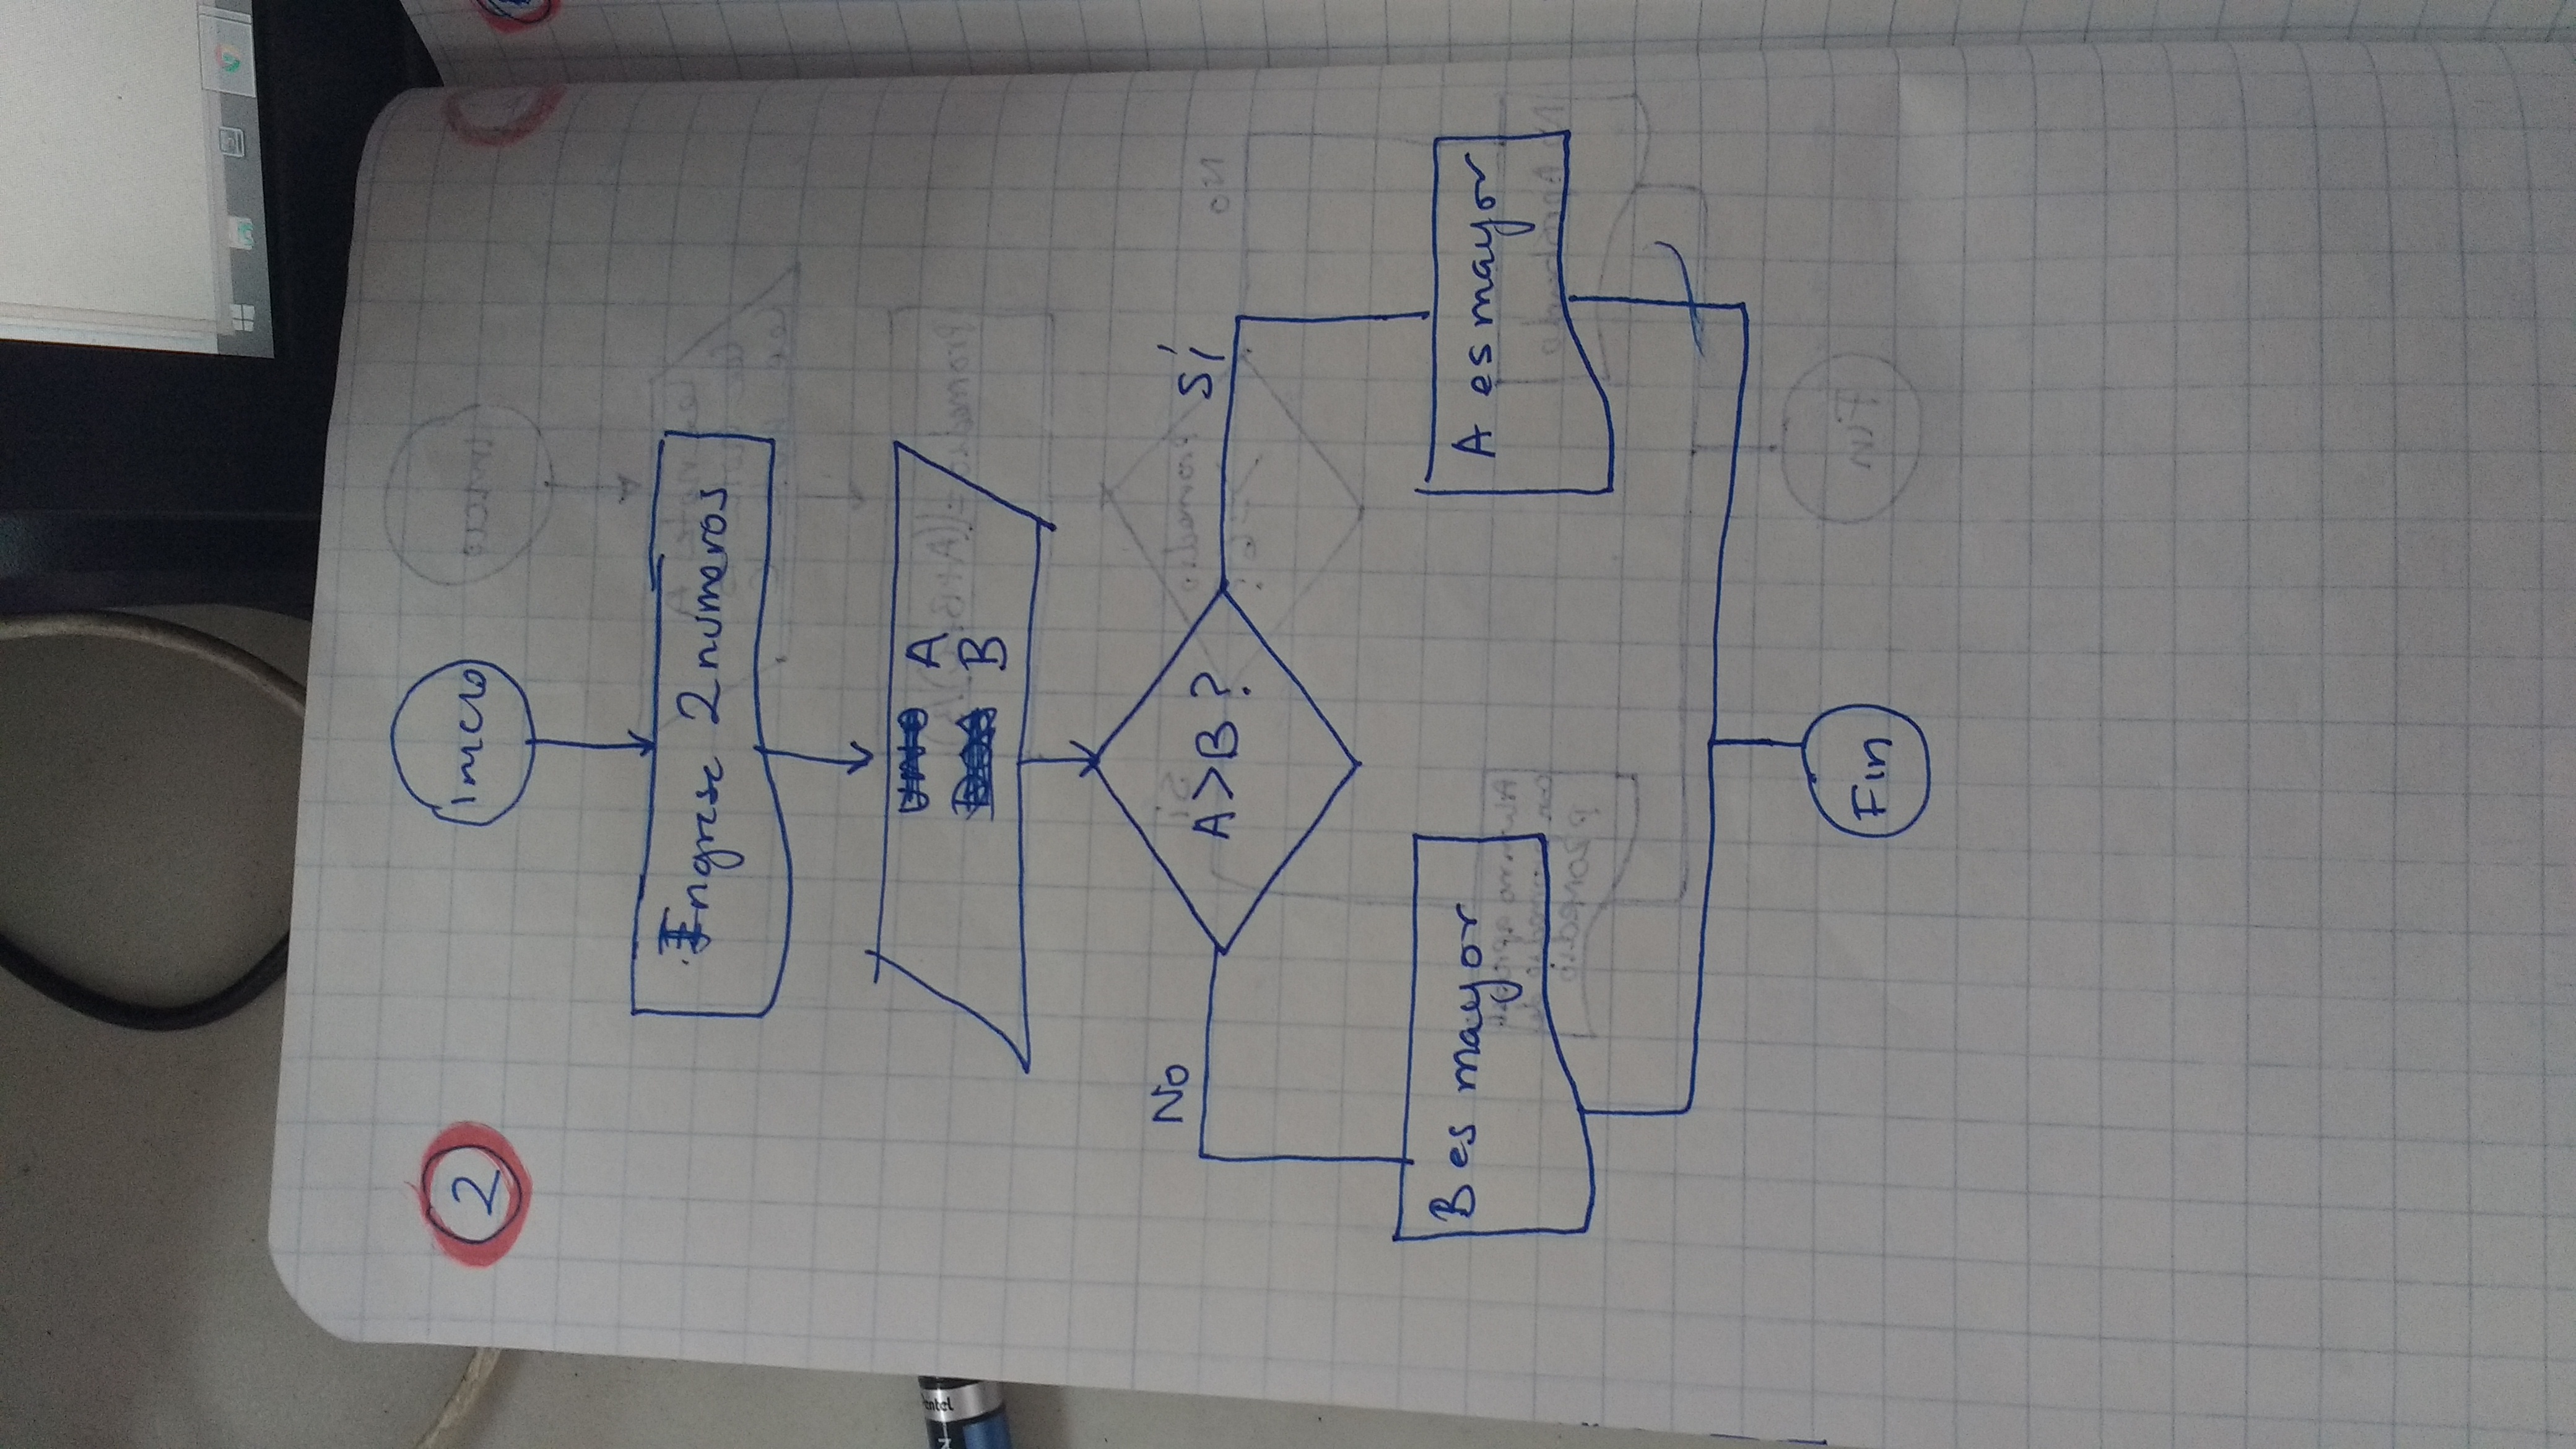 2
Inicio
Ingrese 2 numeros
A
B
A>B ?
No
Sí
B es mayor
A es mayor
Fin